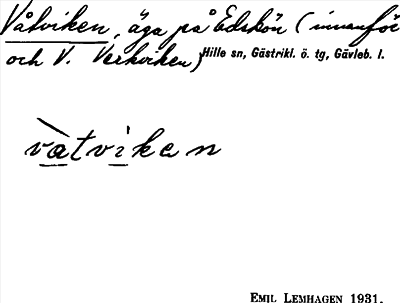 Våtviken, äga på Edskön (innanför
och V. Verkviken) Hille sn, Gästrikl. ö. tg, Gävleb. l.
vàtvikən
EMIL LEMHAGEN 1931.